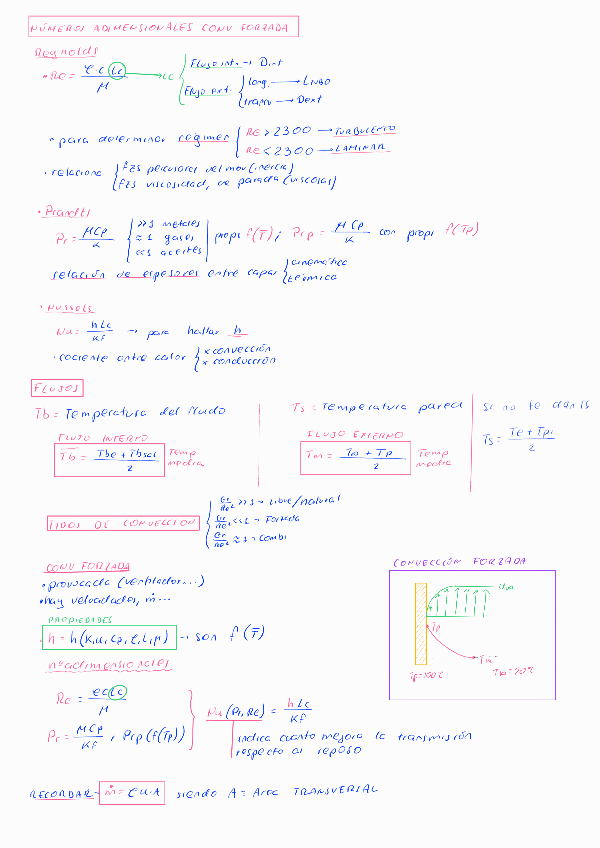 NÚMEROS ADIMENSIONALES CONV FORZADA
Reynolds
• Re = ρ c Lc / μ → Lc { Flujo int. → Dint
Flujo ext. { long. → Ltubo
transv → Dext
• para determinar regimen { Re > 2300 → TURBULENTO
Re < 2300 → LAMINAR
• relaciona { fzs del mov (inercia)
fzs viscosidad, de parada (viscosas)
• Prandtl
Pr = μCp / K { >> 1 metales
≈ 1 gases
<< 1 aceites
props f(T); Prp = μCp / K con props f(Tp)
relación de espesores entre capas { cinemática
térmica
• Nusselt
Nu = hLc / Kf → para hallar h
• cociente entre calor { x convección
x conducción
FLUJOS
Tb = Temperatura del fluido
Ts = Temperatura pared
Si no te dan Ts
FLUJO INTERNO
T̅b = Tbe + Tbsal / 2 Temp media
FLUJO EXTERNO
Tm = T∞ + Tp / 2 Temp media
Ts = Te + Tpi / 2
TIPOS DE CONVECCION { Gr/Re² >> 1 → Libre/natural
Gr/Re² << 1 → Forzada
Gr/Re² ≈ 1 → Combi
CONV FORZADA
• provocada (ventilador...)
• hay velocidades, ṁ...
PROPIEDADES
• h = h(K, u, Cp, ρ, L, μ) → son f(T̅)
nº adimensionales
Re = ρ c Lc / μ
Pr = μCp / Kf , Prp (f(Tp))
Nu (Pr, Re) = hLc / Kf
indica cuanto mejora la transmisión
respecto al reposo
CONVECCIÓN FORZADA
U∞
Tp
T∞
Tp=100°C
T∞=20°C
RECORDAR → ṁ = ρ u · A siendo A = Area TRANSVERSAL